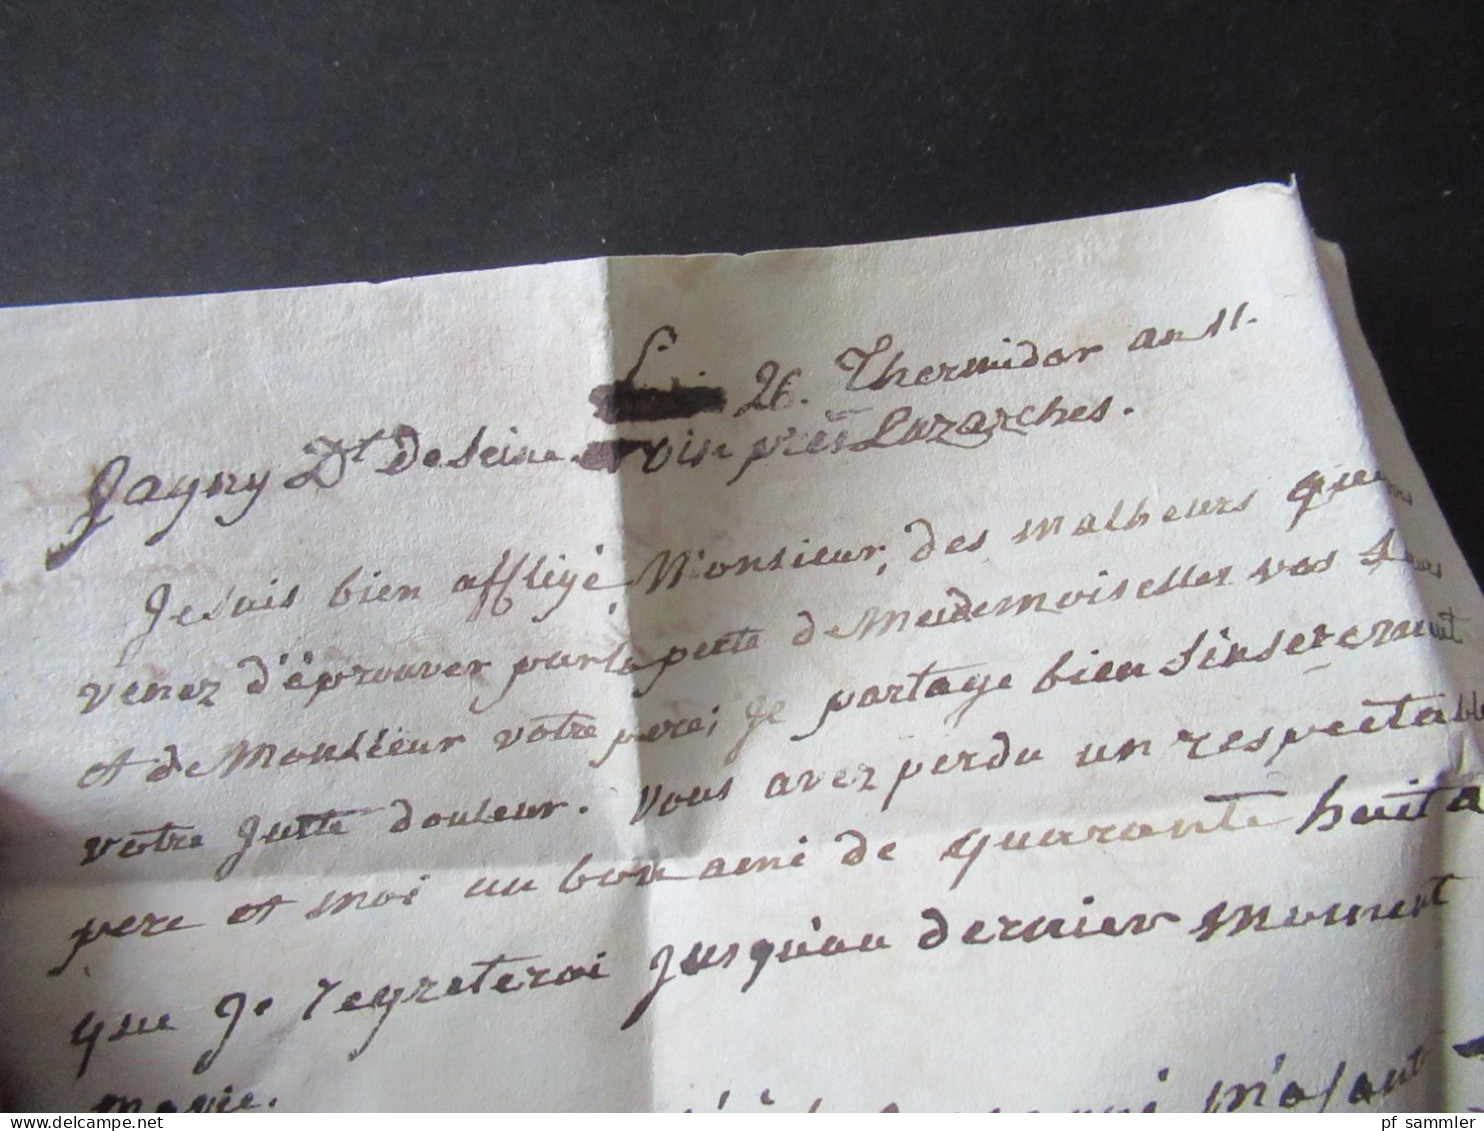 26. Thermidor an 11.
Jagny Dt. de seine et oise près Luzarches.
Je suis bien affligé Monsieur, des malheurs que
venez d'éprouver par la perte de Mesdemoiselles vos
et de Monsieur votre pere, je partage bien sinserement
votre juste douleur. vous avez perdu un respectable
pere et moi un bon ami de quarante huit
que je regreterai jusqu'au dernier moment
ma vie.